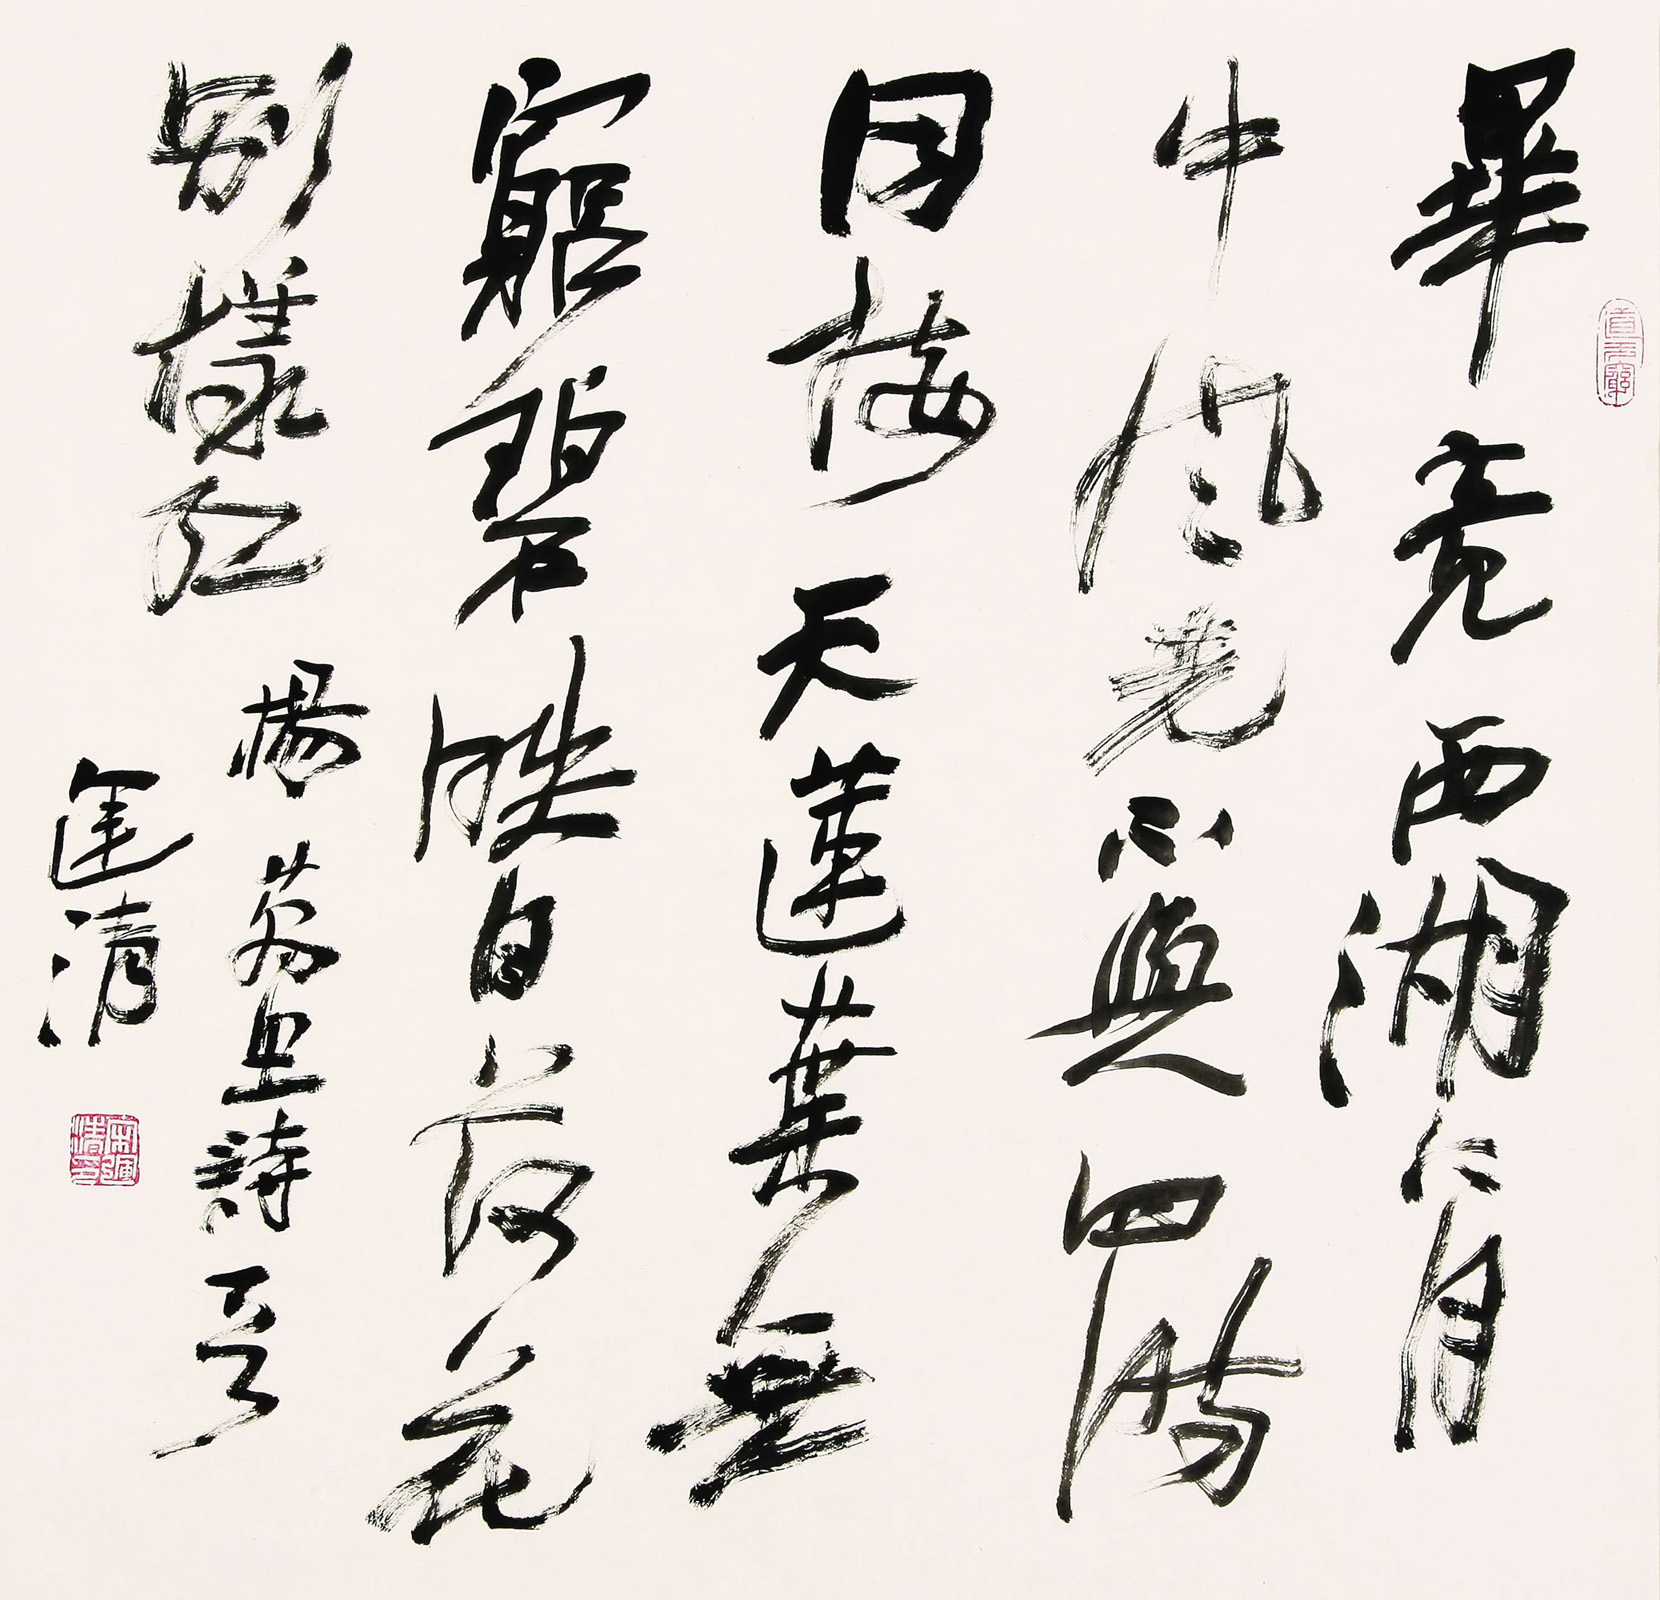 畢竟西湖六月
中風光不與四時
同接天蓮葉無
窮碧映日荷花
別樣紅
楊萬里詩
運清
宋運清印